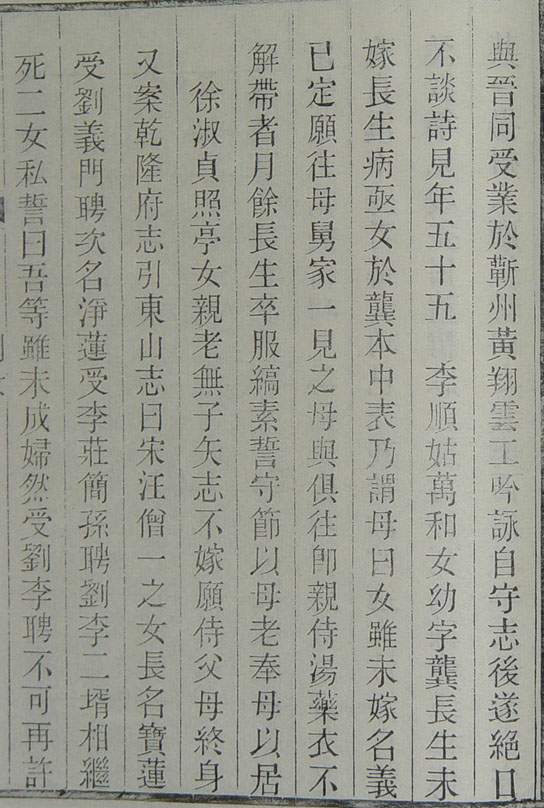 與晉同受業於蘄州黃翔雲工吟詠自守志後遂絕口
不談詩見年五十五　李順姑萬和女幼字龔長生未
嫁長生病亟女於龔本中表乃謂母曰女雖未嫁名義
已定願往母舅家一見之母與俱往卽親侍湯藥衣不
解帶者月餘長生卒服縞素誓守節以母老奉母以居
徐淑貞照亭女親老無子矢志不嫁願侍父母終身
又案乾隆府志引東山志曰宋汪僧一之女長名寶蓮
受劉義門聘次名淨蓮受李莊簡孫聘劉李二壻相繼
死二女私誓曰吾等雖未成婦然受劉李聘不可再許